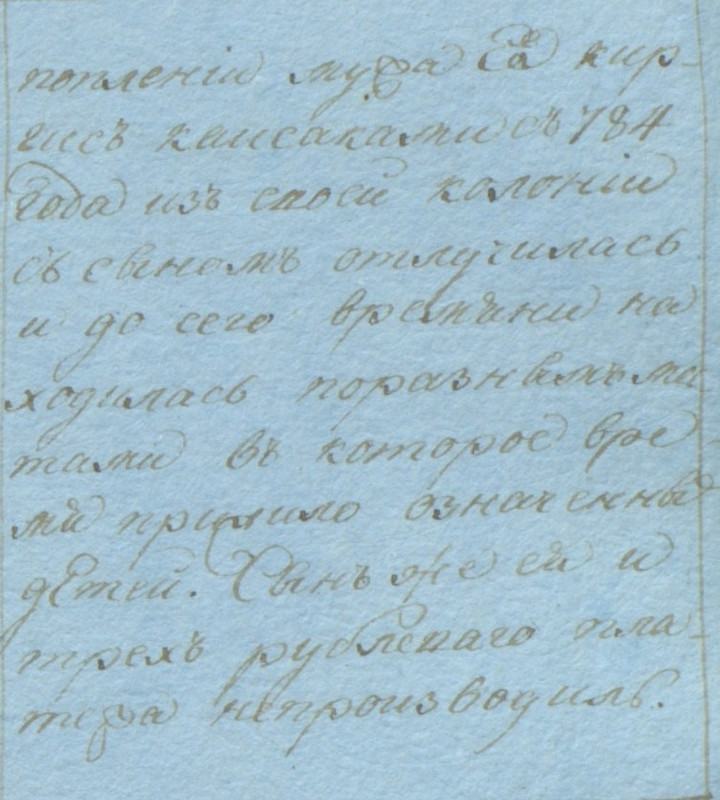 поплении мужа Ея кир-
гисъ каисаками съ 784
года изъ своей колоніи
съ сыномъ отлучилась
и до сего времѣни на
ходилась поразнымъ ме
тами въ которое вре
мя прижило означенны
дѣтей. Сынъ же ей и
трехъ рублеваго пла-
тежа непроизводилъ.